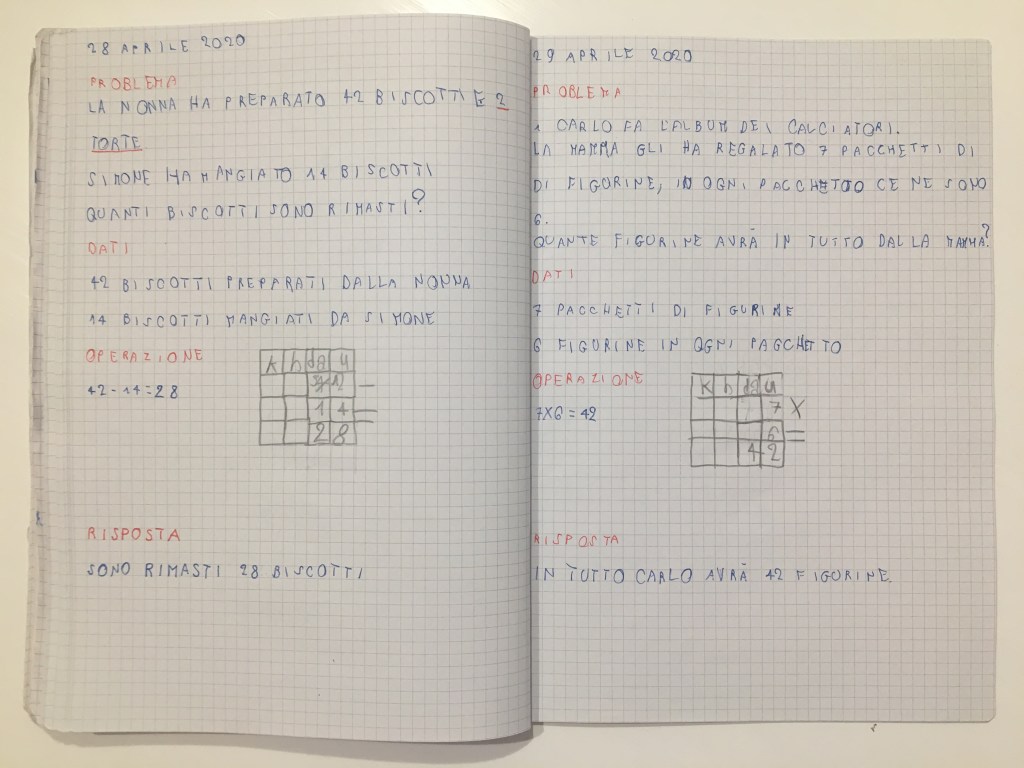 28 APRILE 2020
PROBLEMA
LA NONNA HA PREPARATO 42 BISCOTTI E 2
TORTE
SIMONE HA MANGIATO 14 BISCOTTI
QUANTI BISCOTTI SONO RIMASTI?
DATI
42 BISCOTTI PREPARATI DALLA NONNA
14 BISCOTTI MANGIATI DA SIMONE
OPERAZIONE
42-14=28
k h da u
-
1 4 =
2 8
RISPOSTA
SONO RIMASTI 28 BISCOTTI
29 APRILE 2020
PROBLEMA
1 CARLO FA L'ALBUM DEI CALCIATORI.
LA MAMMA GLI HA REGALATO 7 PACCHETTI DI
DI FIGURINE, IN OGNI PACCHETTO CE NE SONO
6.
QUANTE FIGURINE AVRÀ IN TUTTO DALLA MAMMA?
DATI
7 PACCHETTI DI FIGURINE
6 FIGURINE IN OGNI PACCHETTO
OPERAZIONE
7X6=42
K h da u
7 X
6 =
4 2
RISPOSTA
IN TUTTO CARLO AVRÀ 42 FIGURINE.